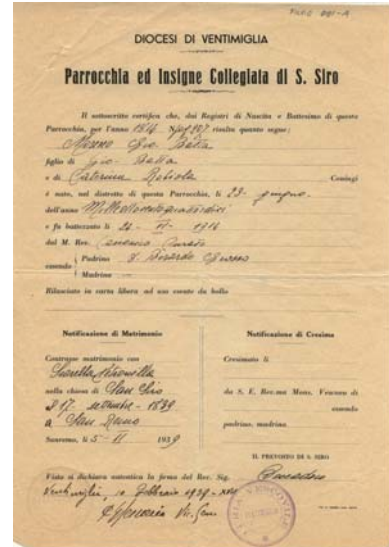 DIOCESI DI VENTIMIGLIA
Parrocchia ed Insigne Collegiata di S. Siro
Il sottoscritto certifica che, dai Registri di Nascita e Battesimo di questa
Parrocchia, per l'anno 1814 risulta quanto segue:
Gio. Batta
figlio di Gio. Batta
e di Caterina Coniugi
è nato, nel distretto di questa Parrocchia, li 23 giugno
dell'anno
e fu battezzato li 24 - VI - 1814
dal M. Rev.
essendo
Padrino
Madrina —
Rilasciato in carta libera ad uso esente da bollo
Notificazione di Matrimonio
Contrasse matrimonio con
Petronilla
nella chiesa di San Siro
il 17 - settembre - 1839
a San Remo
Sanremo, li 5 - II 1939
Notificazione di Cresima
Cresimato li
da S. E. Rev.ma Mons. Vescovo di
essendo
padrino, madrina
IL PREVOSTO DI S. SIRO
Visto si dichiara autentica la firma del Rev. Sig.
Ventimiglia, 10 Febbraio 1939 - XVII
Vic. Gen.